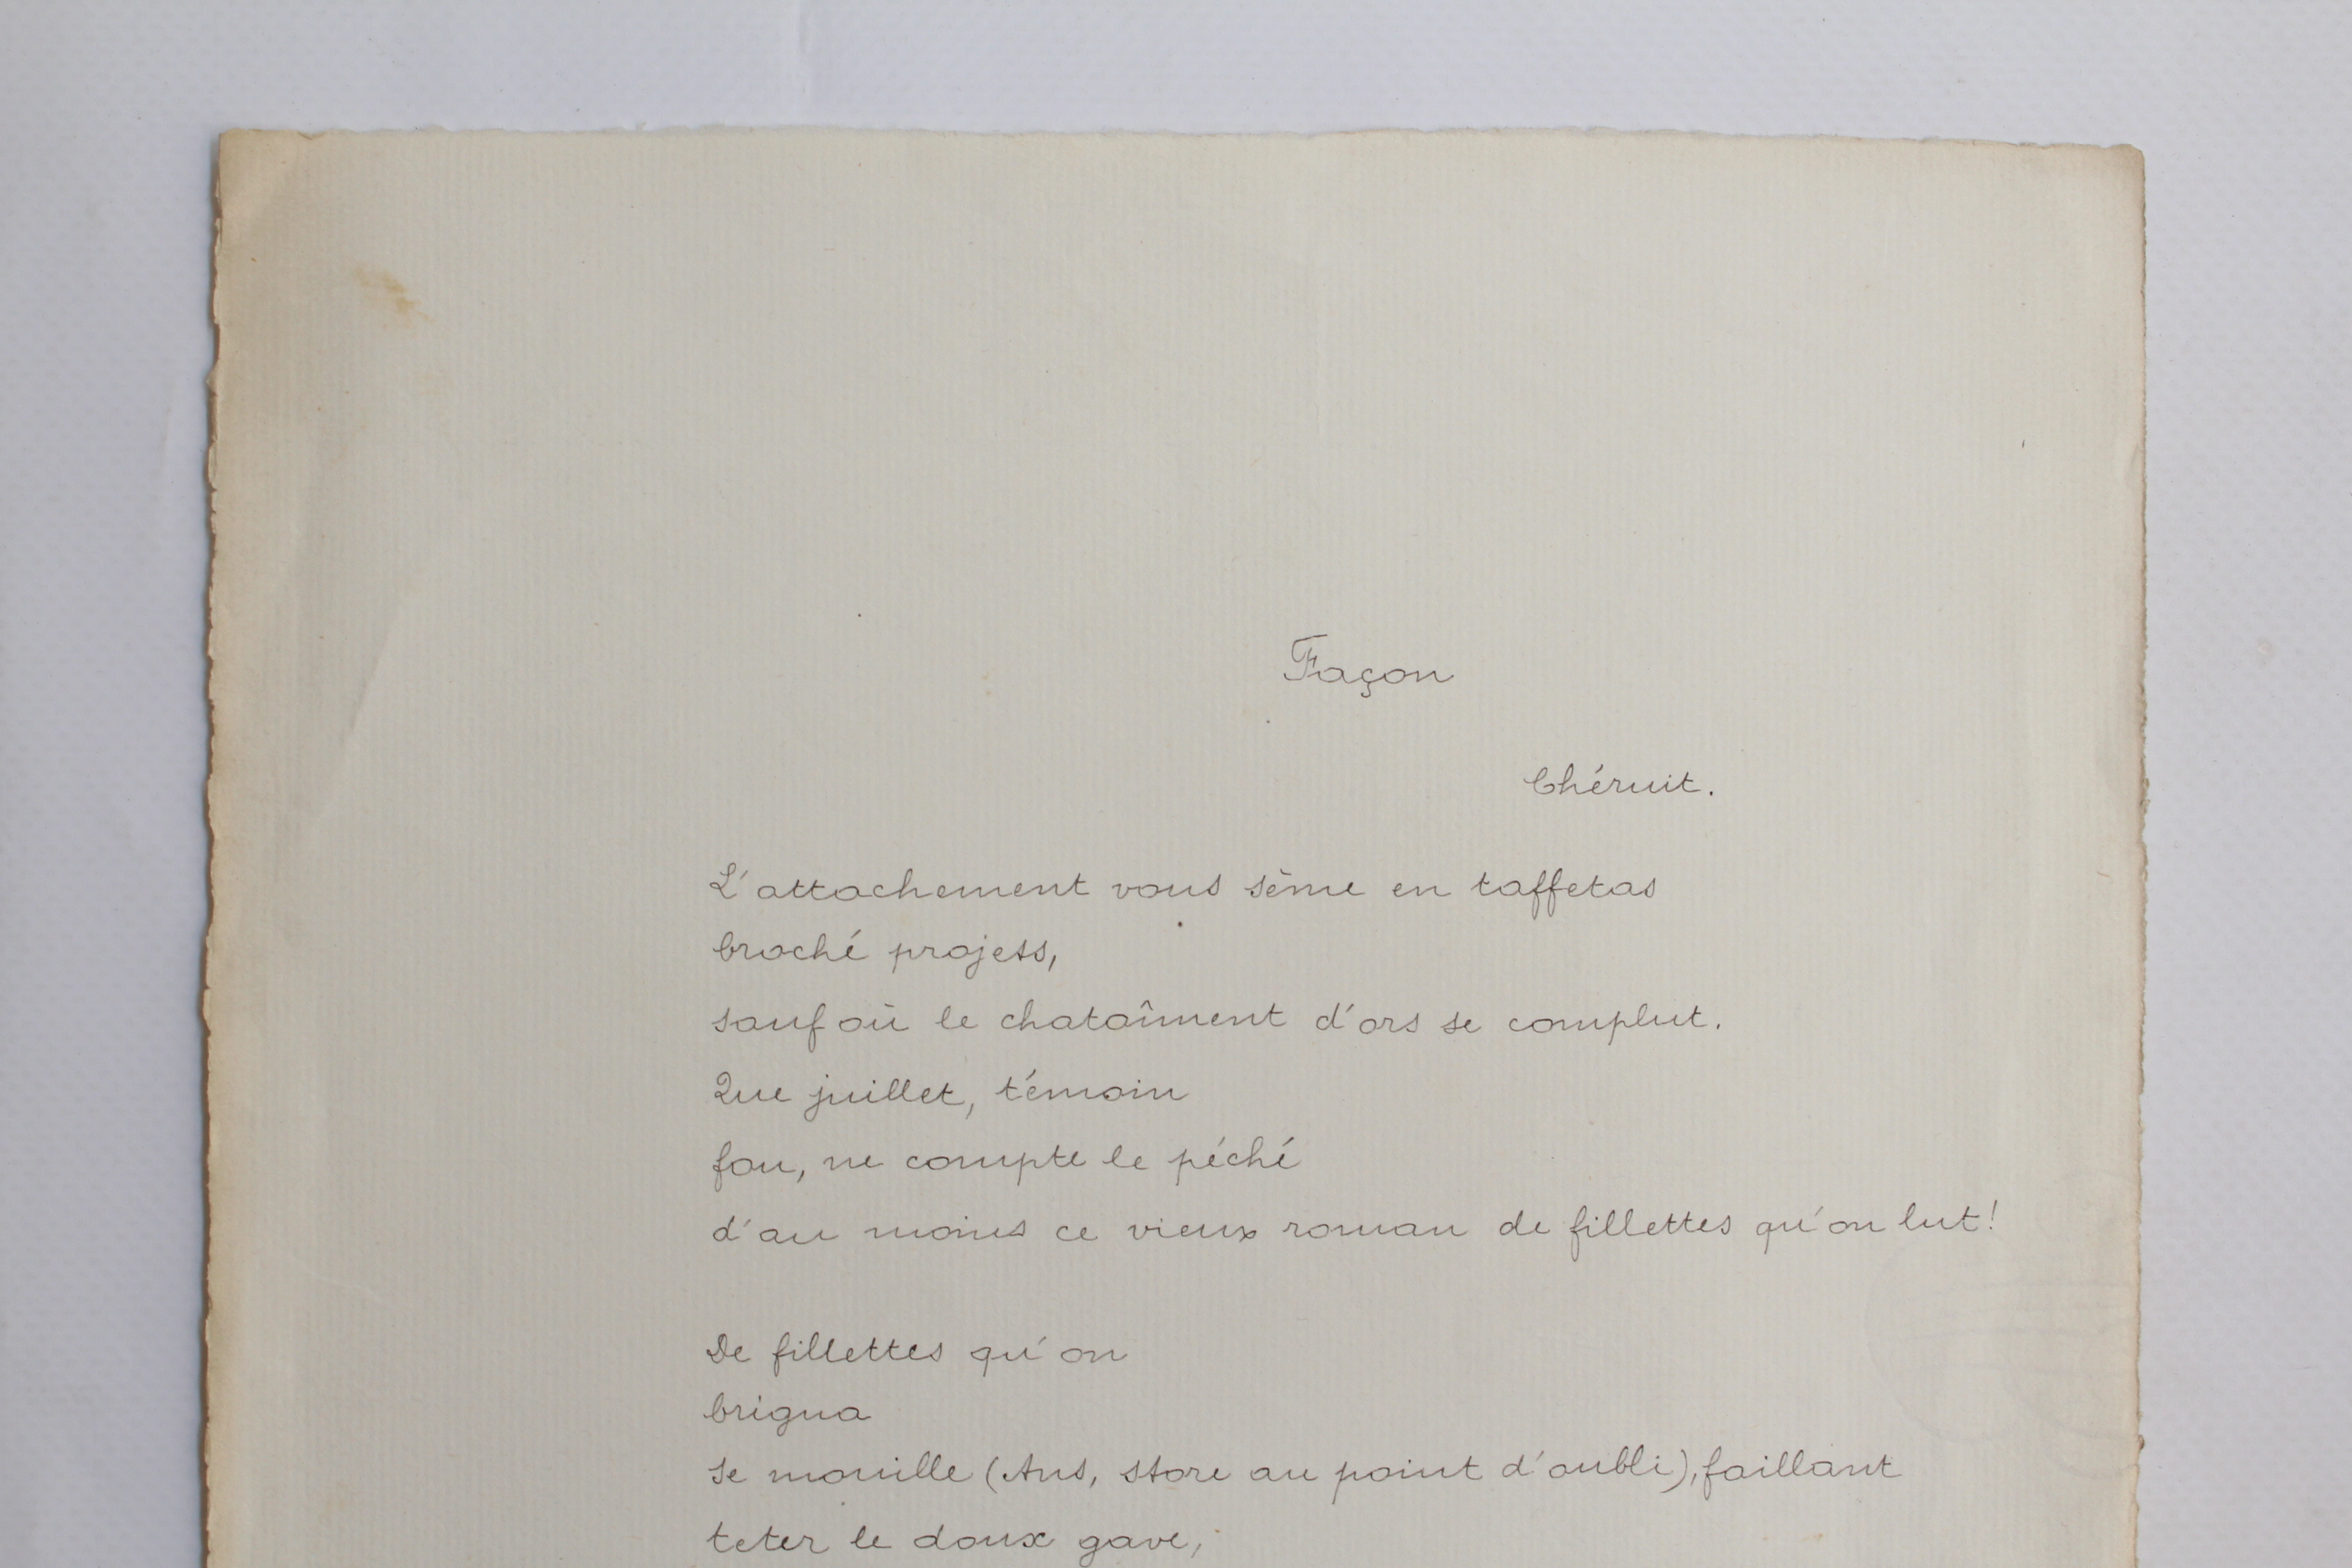 Façon
Chéruit.
L'attachement vous sème en taffetas
broché projets,
sauf où le chataîment d'ors se complut.
Que juillet, témoin
fou, ne compte le péché
d'au moins ce vieux roman de fillettes qu'on lut!
De fillettes qu'on
brigua
se mouille (Ans, store au point d'oubli), faillant
teter le doux gave,